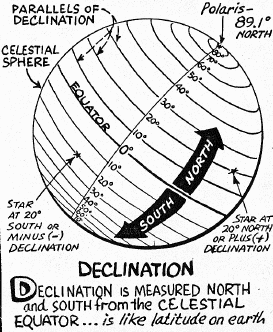 PARALLELS OF
DECLINATION
Polaris-
89.1°
NORTH
CELESTIAL
SPHERE
80°
70°
60°
50°
40°
30°
20°
10°
EQUATOR
0°
10°
20°
30°
40°
50°
60°
NORTH
SOUTH
STAR
AT 20°
SOUTH OR
MINUS (-)
DECLINATION
STAR AT
20° NORTH
OR PLUS(+)
DECLINATION
DECLINATION
DECLINATION IS MEASURED NORTH
and SOUTH from the CELESTIAL
EQUATOR... is like latitude on earth